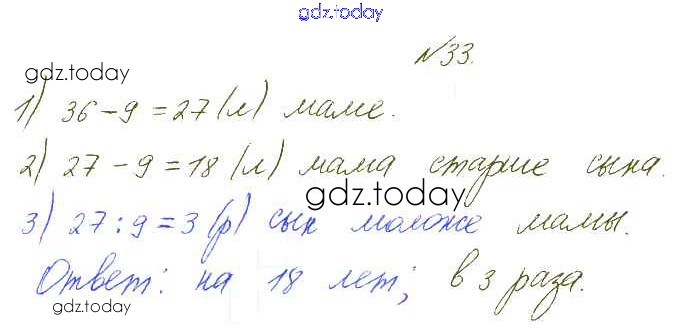 gdz.today
№33.
gdz.today
1) 36-9=27(л) маме.
2) 27-9=18(л) мама старше сына.
gdz.today
3) 27:9=3(р) сын моложе мамы.
Ответ: на 18 лет; в 3 раза.
gdz.today